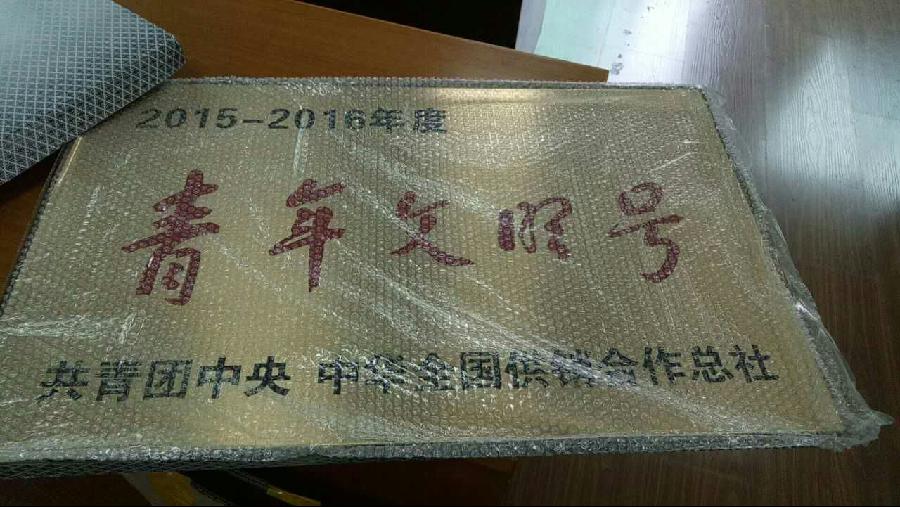 2015-2016年度
青年文明号
共青团中央 中华全国供销合作总社